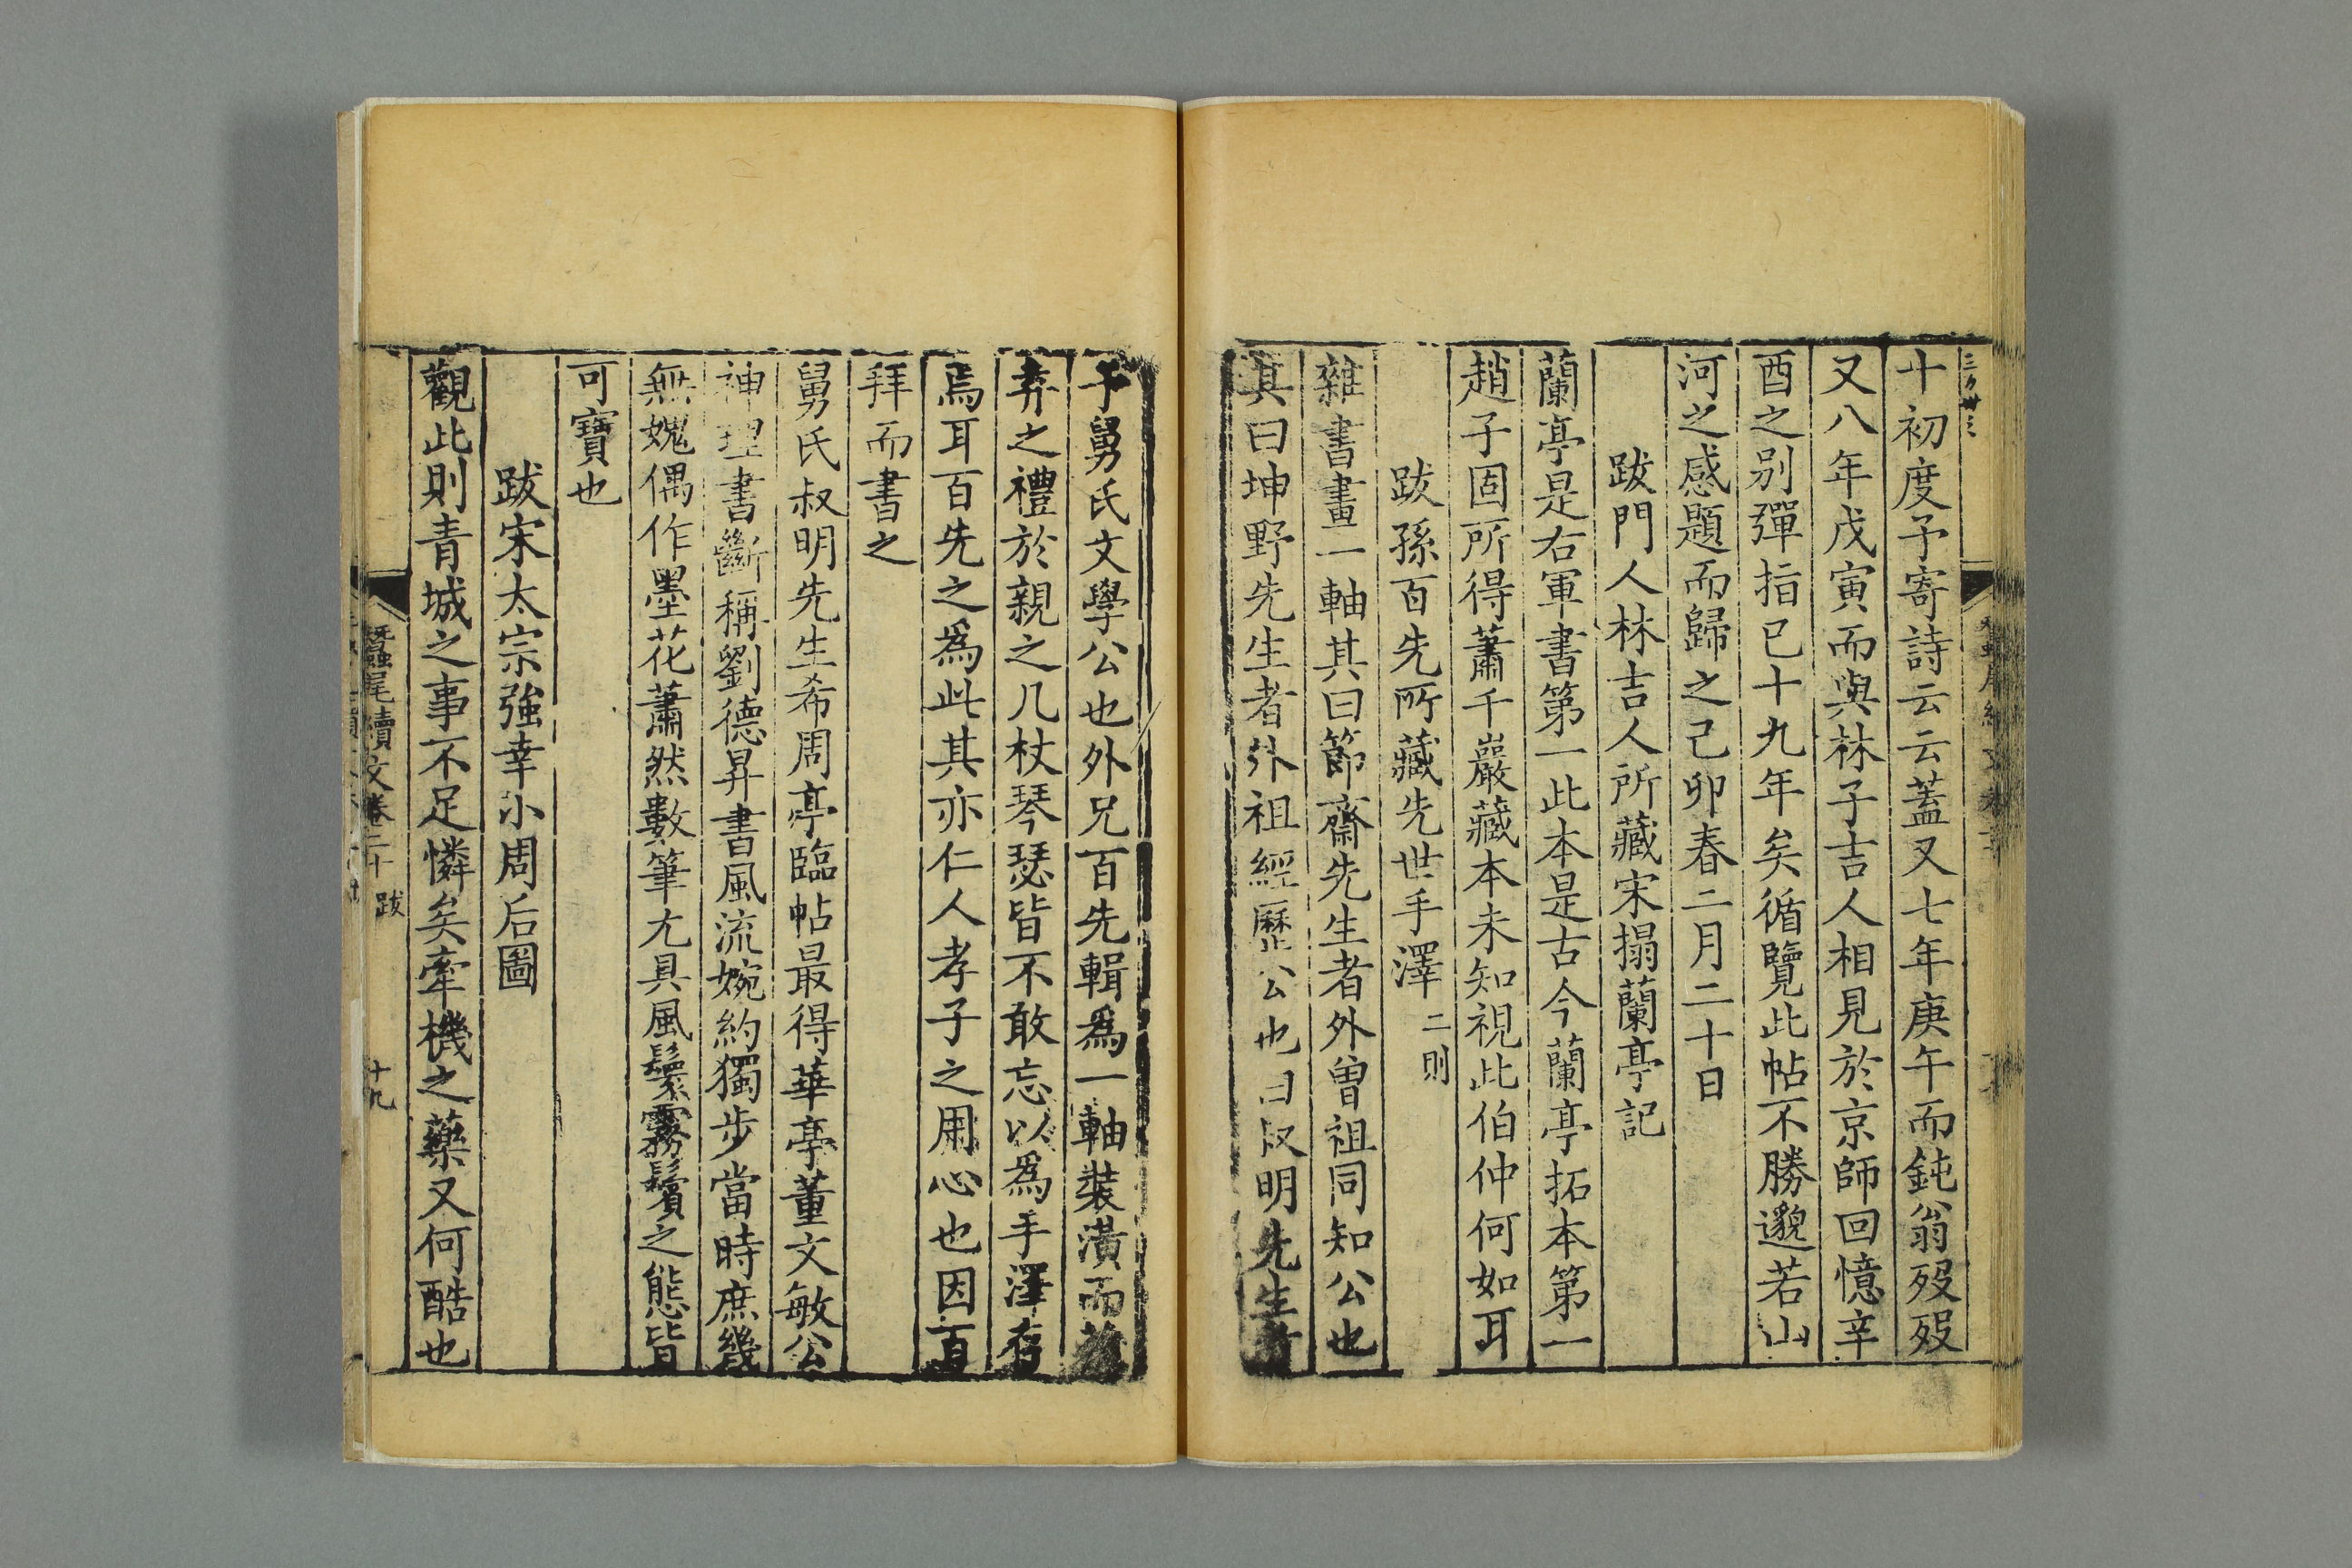 十初度予寄詩云云蓋又七年庚午而鈍翁歿歿
又八年戊寅而與林子吉人相見於京師回憶辛
酉之别彈指已十九年矣循覽此帖不勝邈若山
河之感題而歸之己卯春二月二十日
跋門人林吉人所藏宋搨蘭亭記
蘭亭是右軍書第一此本是古今蘭亭拓本第一
趙子固所得蕭千巖藏本未知視此伯仲何如耳
跋孫百先所藏先世手澤二則
雜書畫一軸其曰節齋先生者外曾祖同知公也
其曰坤野先生者外祖經歷公也曰叔明先生者
予舅氏文學公也外兄百先輯爲一軸裝潢而
弆之禮於親之几杖琴瑟皆不敢忘以爲手澤存
焉耳百先之爲此其亦仁人孝子之用心也因百
拜而書之
舅氏叔明先生希周亭臨帖最得華亭董文敏公
神理書斷稱劉德昇書風流婉約獨步當時庶幾
無媿偶作墨花蕭然數筆尤具風鬟霧鬢之態皆
可寶也
跋宋太宗強幸小周后圖
觀此則青城之事不足憐矣牽機之藥又何酷也
蠶尾續文卷二十 跋 十九